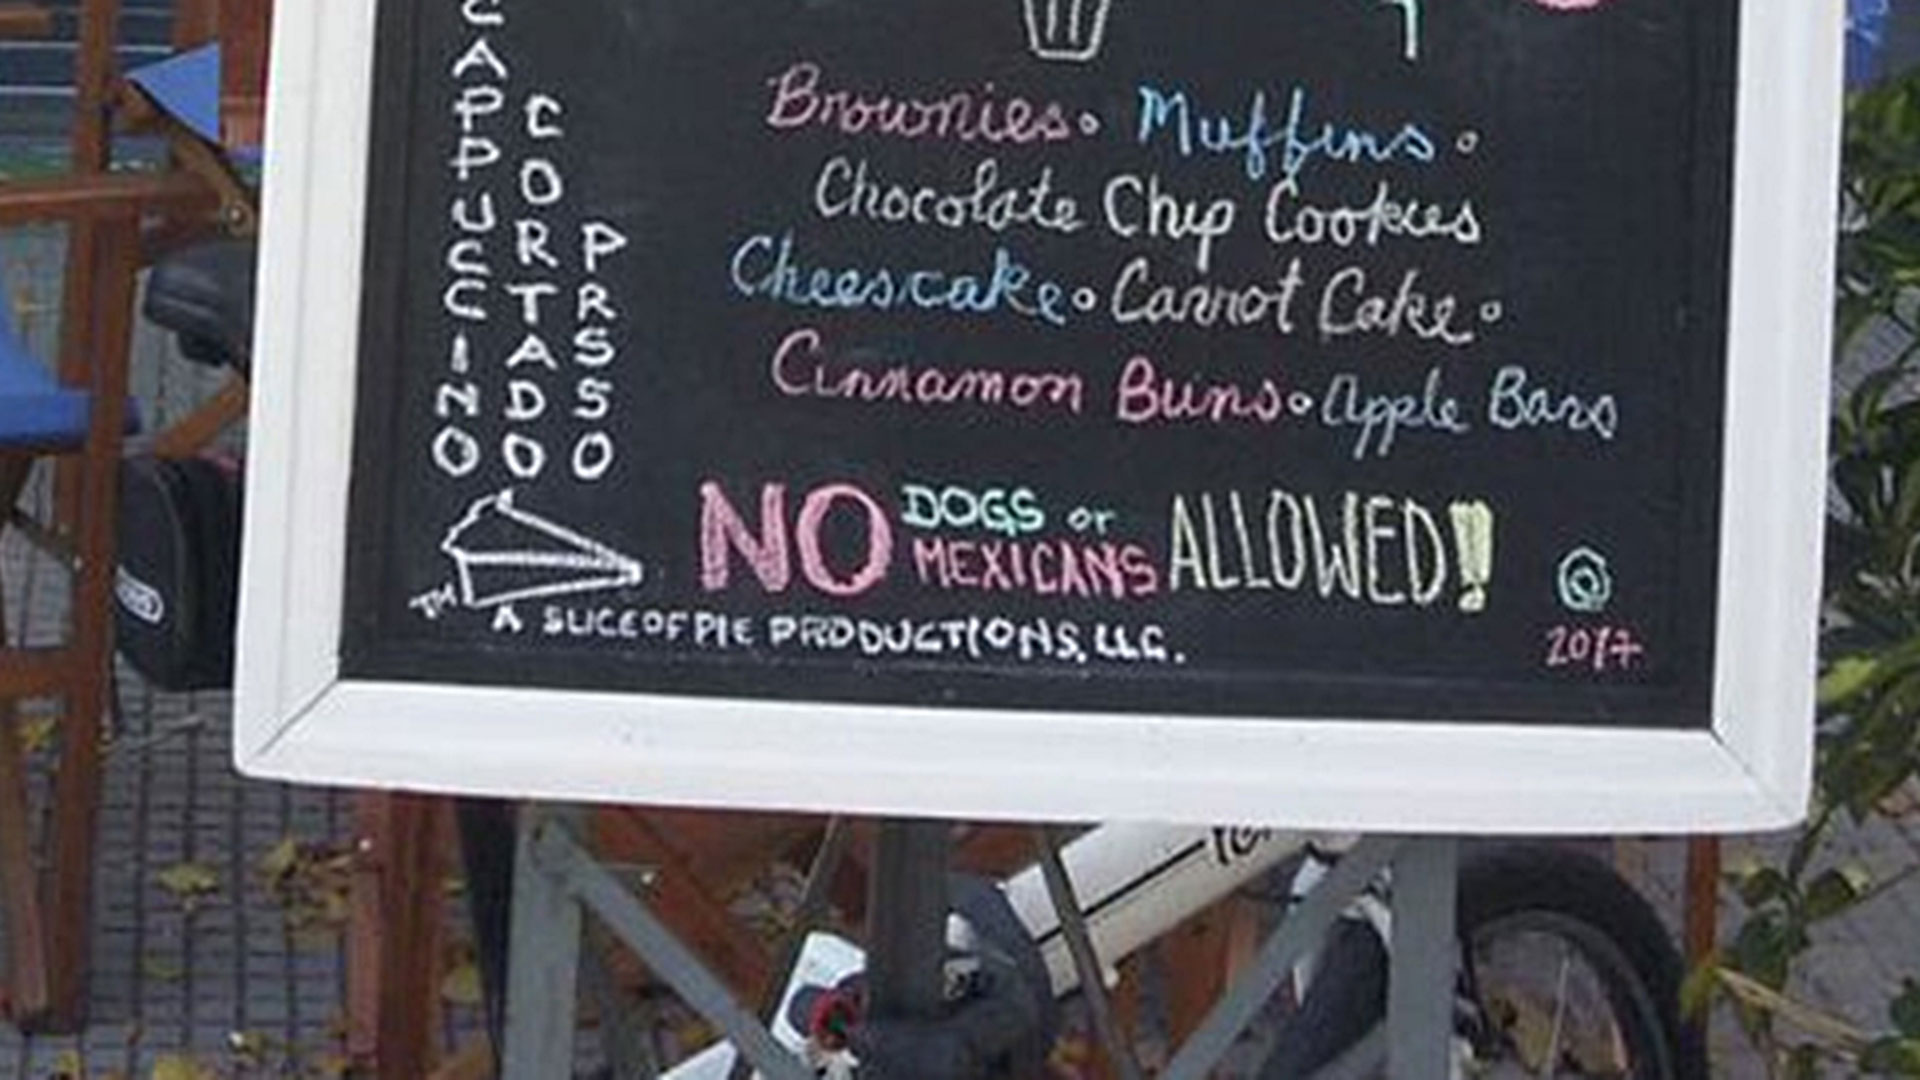 CAPPUCCINO
CORTADO
PRSSO
Brownies • Muffins •
Chocolate Chip Cookies
Cheesecake • Carrot Cake •
Cinnamon Buns • Apple Bars
NO DOGS or MEXICANS ALLOWED!!
TM
A SLICE OF PIE PRODUCTIONS, LLC.
2017